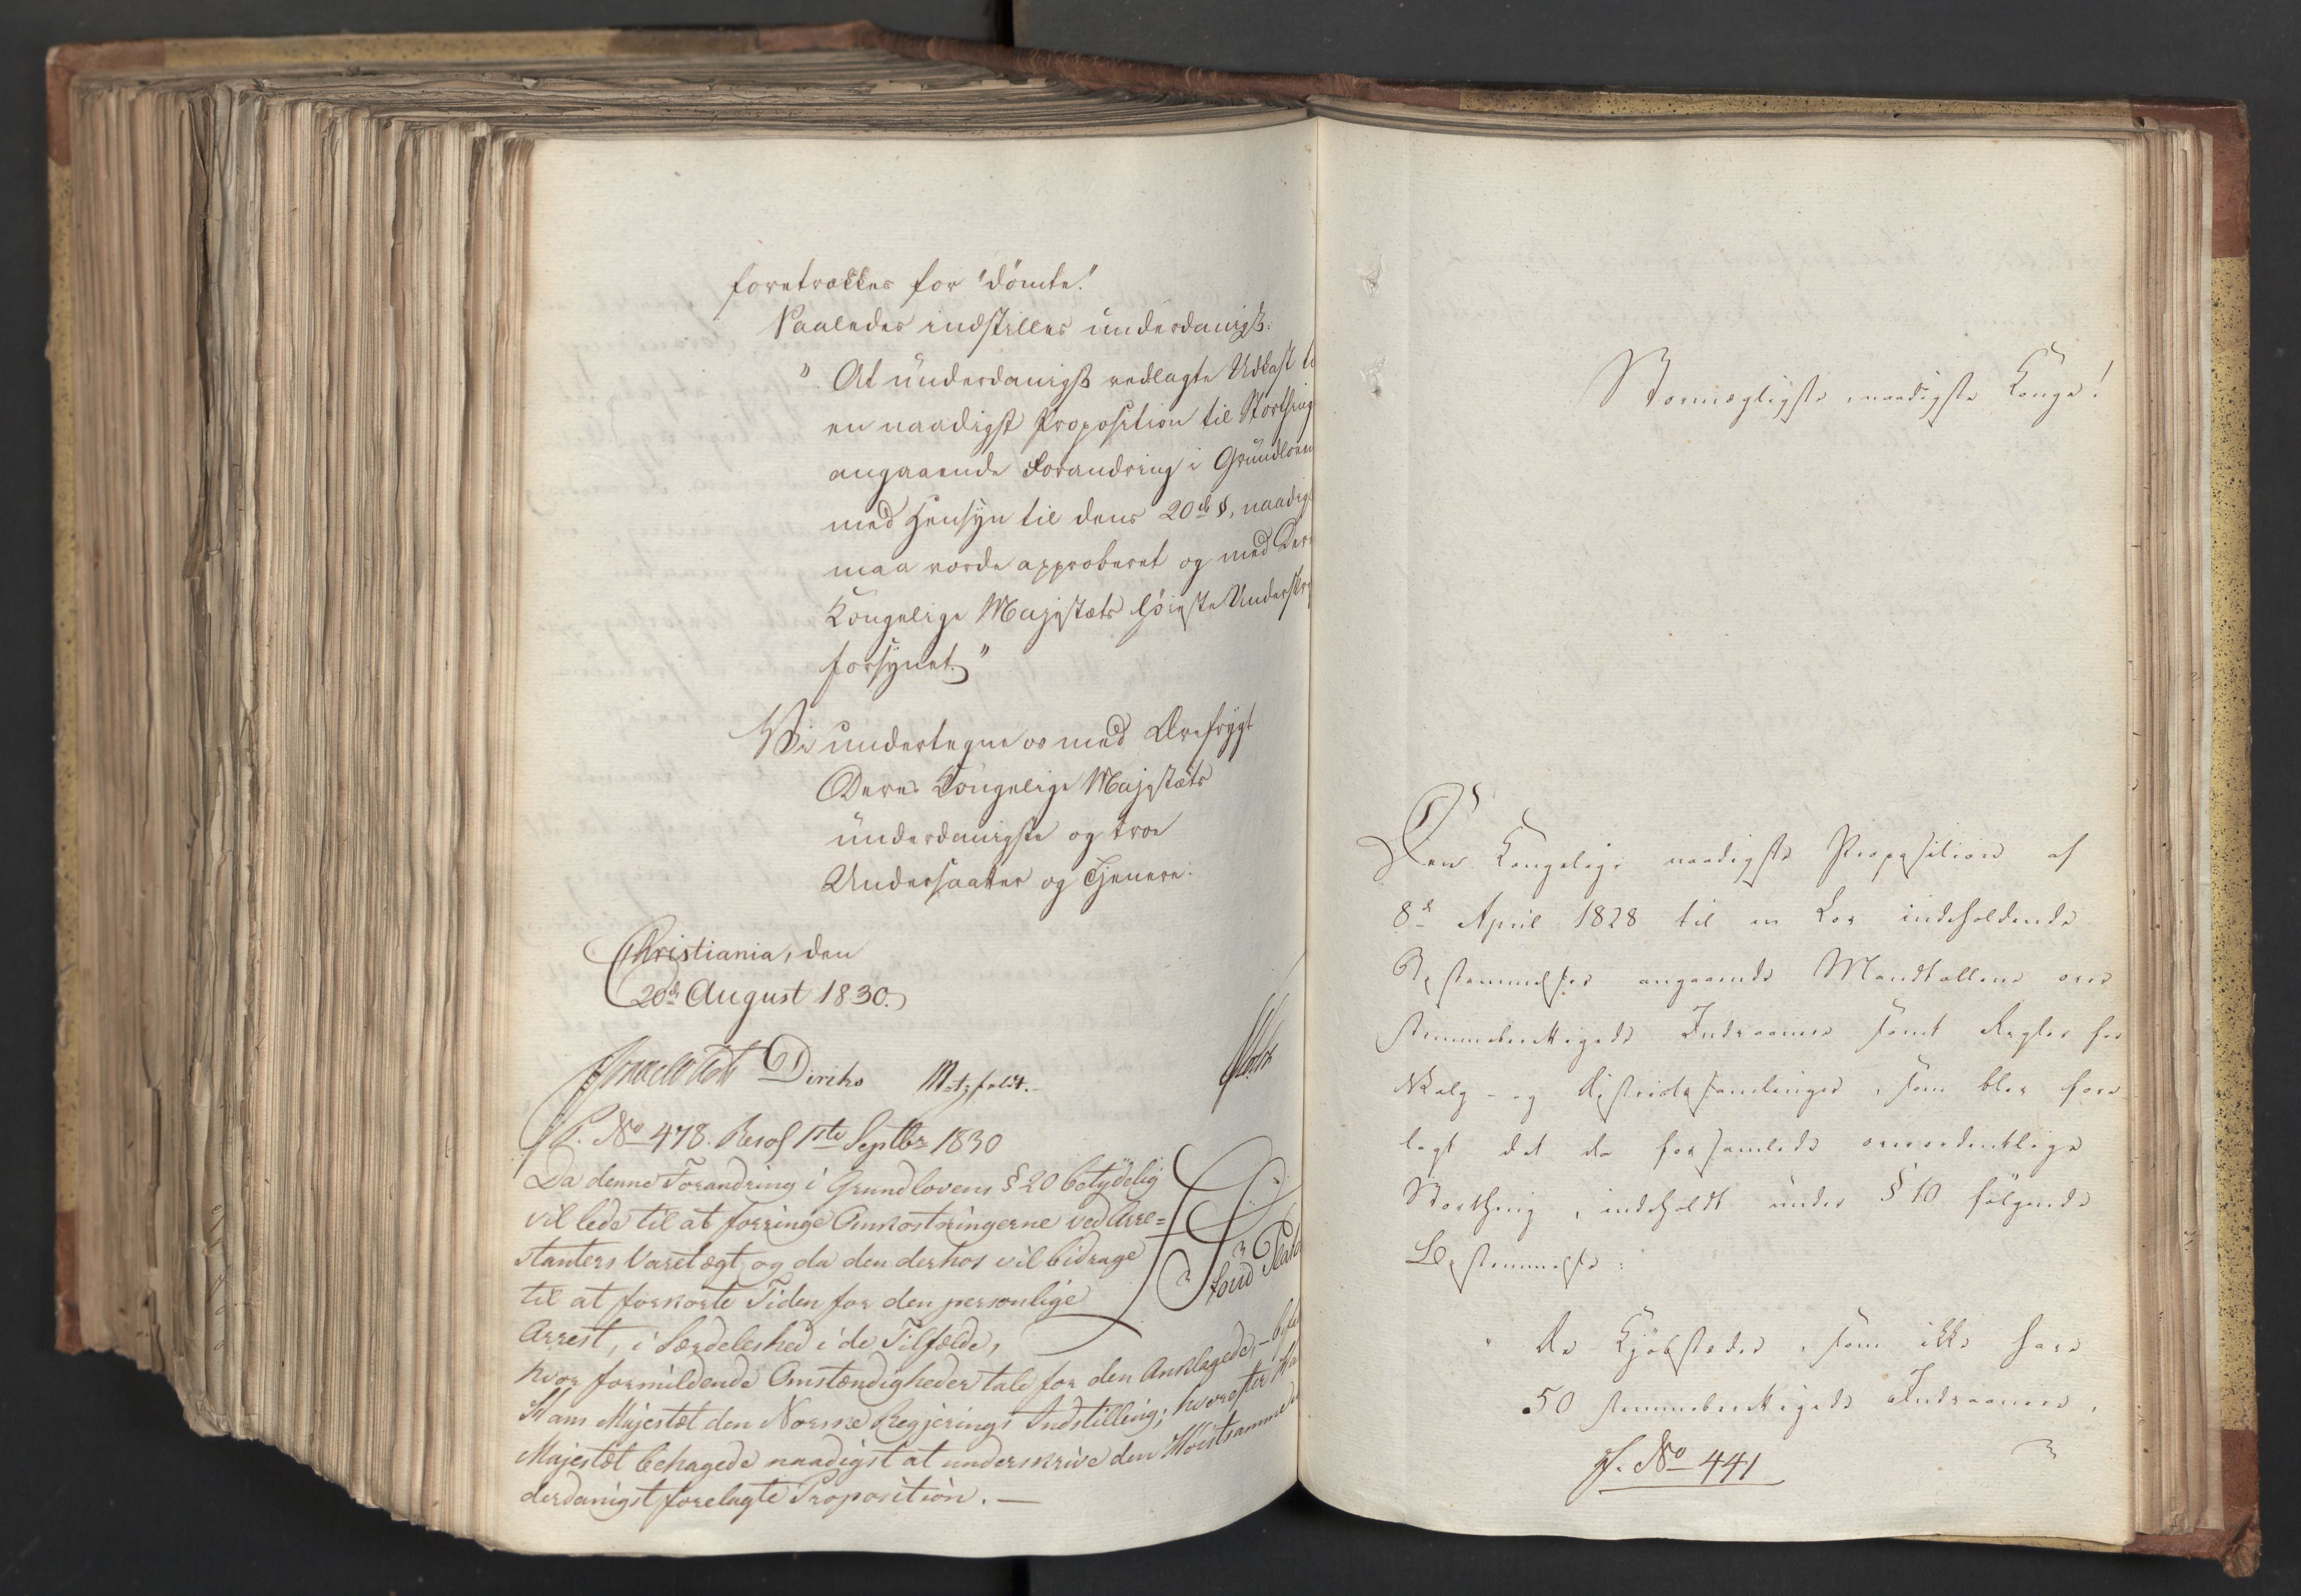 foretrækkes for "dömte."
Saaledes indstilles underdanigst:
"At underdanigst vedlagte Udkast til
en naadigst Proposition til Storthing
angaaende Forandring i Grundloven
med Hensyn til dens 20de §, naadigst
maa vorde approberet og med Deres
Kongelige Majestæts höieste Underskr
forsynet."
Vi undertegne os med Ærefrygt
Deres Kongelige Majestæts
underdanigste og troe
Undersaatter og Tjenere.
Christiania, den
20de August 1830.
Diriks Motzfeldt.
P. No 478. Resol 1ste Septbr 1830
Da denne Forandring i Grundlovens § 20 betydelig
vil lede til at forringe Omkostningerne ved Arre=
stanters Varetægt, og da den derhos vil bidrage
til at forkorte Tiden for den personlige
Arrest, i Særdeleshed i de Tilfælde,
hvor formildende Omstændigheder tale for den Anklagede, –
Hans Majestæt den Norske Regjerings Indstilling; hvorefter
Majestæt behagede naadigst at underskrive den Höistsamme
derdanigst forelagte Proposition. –
Stormægtigste, naadigste Konge!
Den Kongelige naadigste Proposition af
8de April 1828 til en Lov indeholdende
Bestemmelser angaaende Mandtallene over
stemmeberettigede Indvaanere samt Regler for
Valg- og Districtsforsamlinger, som blev fore
lagt det da forsamlede overordentlige
Storthing, indeholdt under § 10 følgende
Bestemmelse:
"De Kjøbstæder, som ikke have
50 stemmeberettigede Indvaanere,
P. No 441